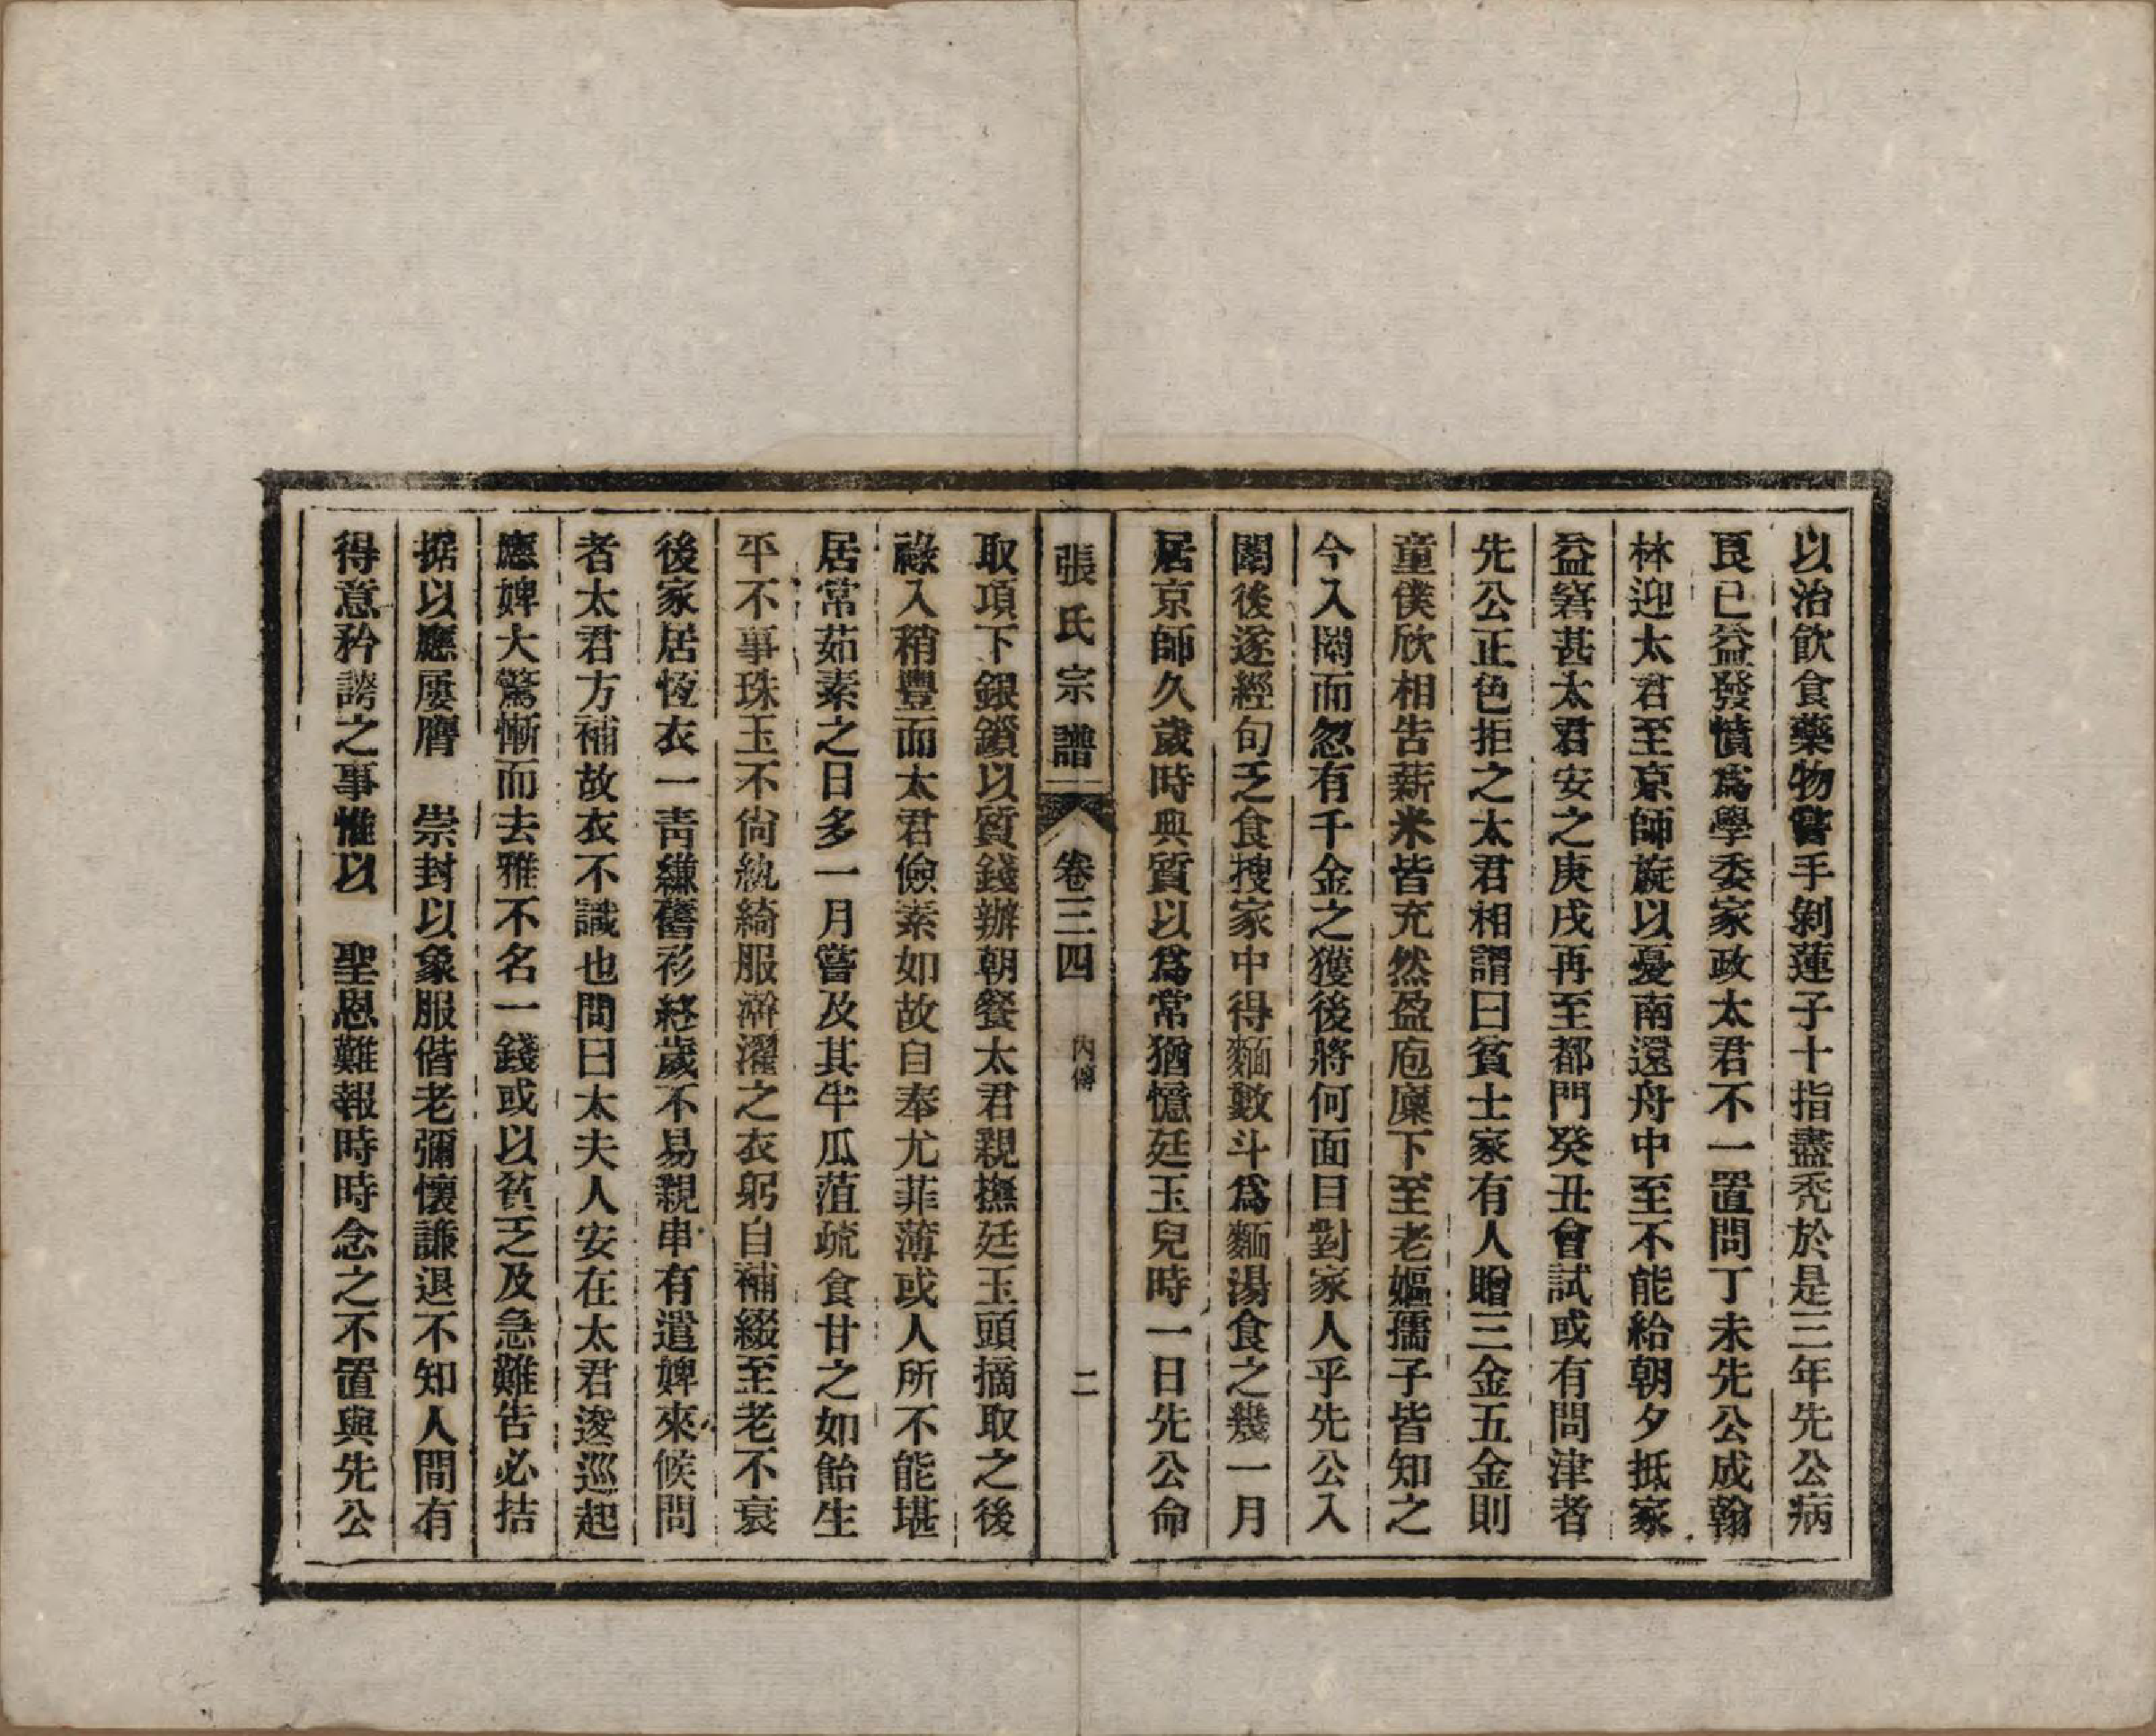 以治飲食藥物嘗手剝蓮子十指盡禿於是三年先公病
良已益發憤爲學委家政太君不一置問丁未先公成翰
林迎太君至京師旋以憂南還舟中至不能給朝夕抵家
益窘甚太君安之庚戌再至都門癸丑會試或有問津者
先公正色拒之太君相謂曰貧士家有人贈三金五金則
童僕欣相告薪米皆充然盈庖廩下至老嫗孺子皆知之
今入闈而忽有千金之獲後將何面目對家人乎先公入
闈後遂經旬乏食搜家中得麵數斗爲麵湯食之幾一月
居京師久歲時典質以爲常猶憶廷玉兒時一日先公命
張氏宗譜 卷三四 內傳 二
取項下銀鎖以質錢辦朝餐太君親撫廷玉頭摘取之後
祿入稍豐而太君儉素如故自奉尤菲薄或人所不能堪
居常茹素之日多一月嘗及其半瓜菹疏食甘之如飴生
平不事珠玉不尙紈綺服澣濯之衣躬自補綴至老不衰
後家居恆衣一靑縑舊衫終歲不易親串有遣婢來候問
者太君方補故衣不識也問曰太夫人安在太君逡巡起
應婢大驚慚而去雅不名一錢或以貧乏及急難告必拮
据以應屢膺 崇封以象服偕老彌懷謙退不知人間有
得意矜誇之事惟以 聖恩難報時時念之不置與先公